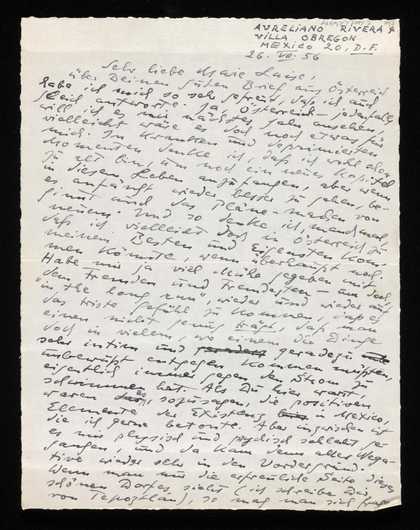 AURELIANO RIVERA 4
VILLA OBREGON
MEXICO 20, D.F.
26. VII. 56
Sehr liebe Marie Luise,
über Deinen süßen Brief aus Österreich
habe ich mich so sehr gefreut, daß ich auch
gleich antworte. Ja, Österreich - jedenfalls
will ich es mir nächstes Jahr ansehen,
vielleicht wäre es doch noch etwas für
mich. In kranken und deprimierten
Momenten denke ich, daß ich wohl aber
zu alt bin, um noch ein neues Kapitel
in diesem Leben anzufangen, aber wenn
es anfängt wieder besser zu gehen, be-
ginnt auch das Pläne-machen von
neuem. Und so denke ich, manchmal,
daß ich vielleicht doch in Österreich zu
meinem Besten und Eigensten kom-
men könnte, wenn überhaupt noch.
Habe mir ja viel Mühe gegeben mit
dem Fremden und Fremdesten - um doch
"in the long run", wieder und wieder auf
das triste Gefühl zu kommen, daß es
einen nicht genug trägt, daß man
doch in vielem, wo einem die Dinge
sehr intim und geradezu
unbewußt entgegen kommen müßten,
eigentlich immer gegen den Strom zu
schwimmen hat. Als Du hier warst
waren es, sozusagen die positiven
Elemente der Existenz in Mexico,
die ich gerne betonte. Aber inzwischen ist
es mir physisch und psychisch schlecht ge-
gangen, und da kam denn alles Nega-
tive wieder sehr in den Vordergrund.
Wenn man nur die erfreuliche Seite dieses
schönen Dorfes sieht (ich schreibe Dir
von Tepoztlan), so mag man sich fragen